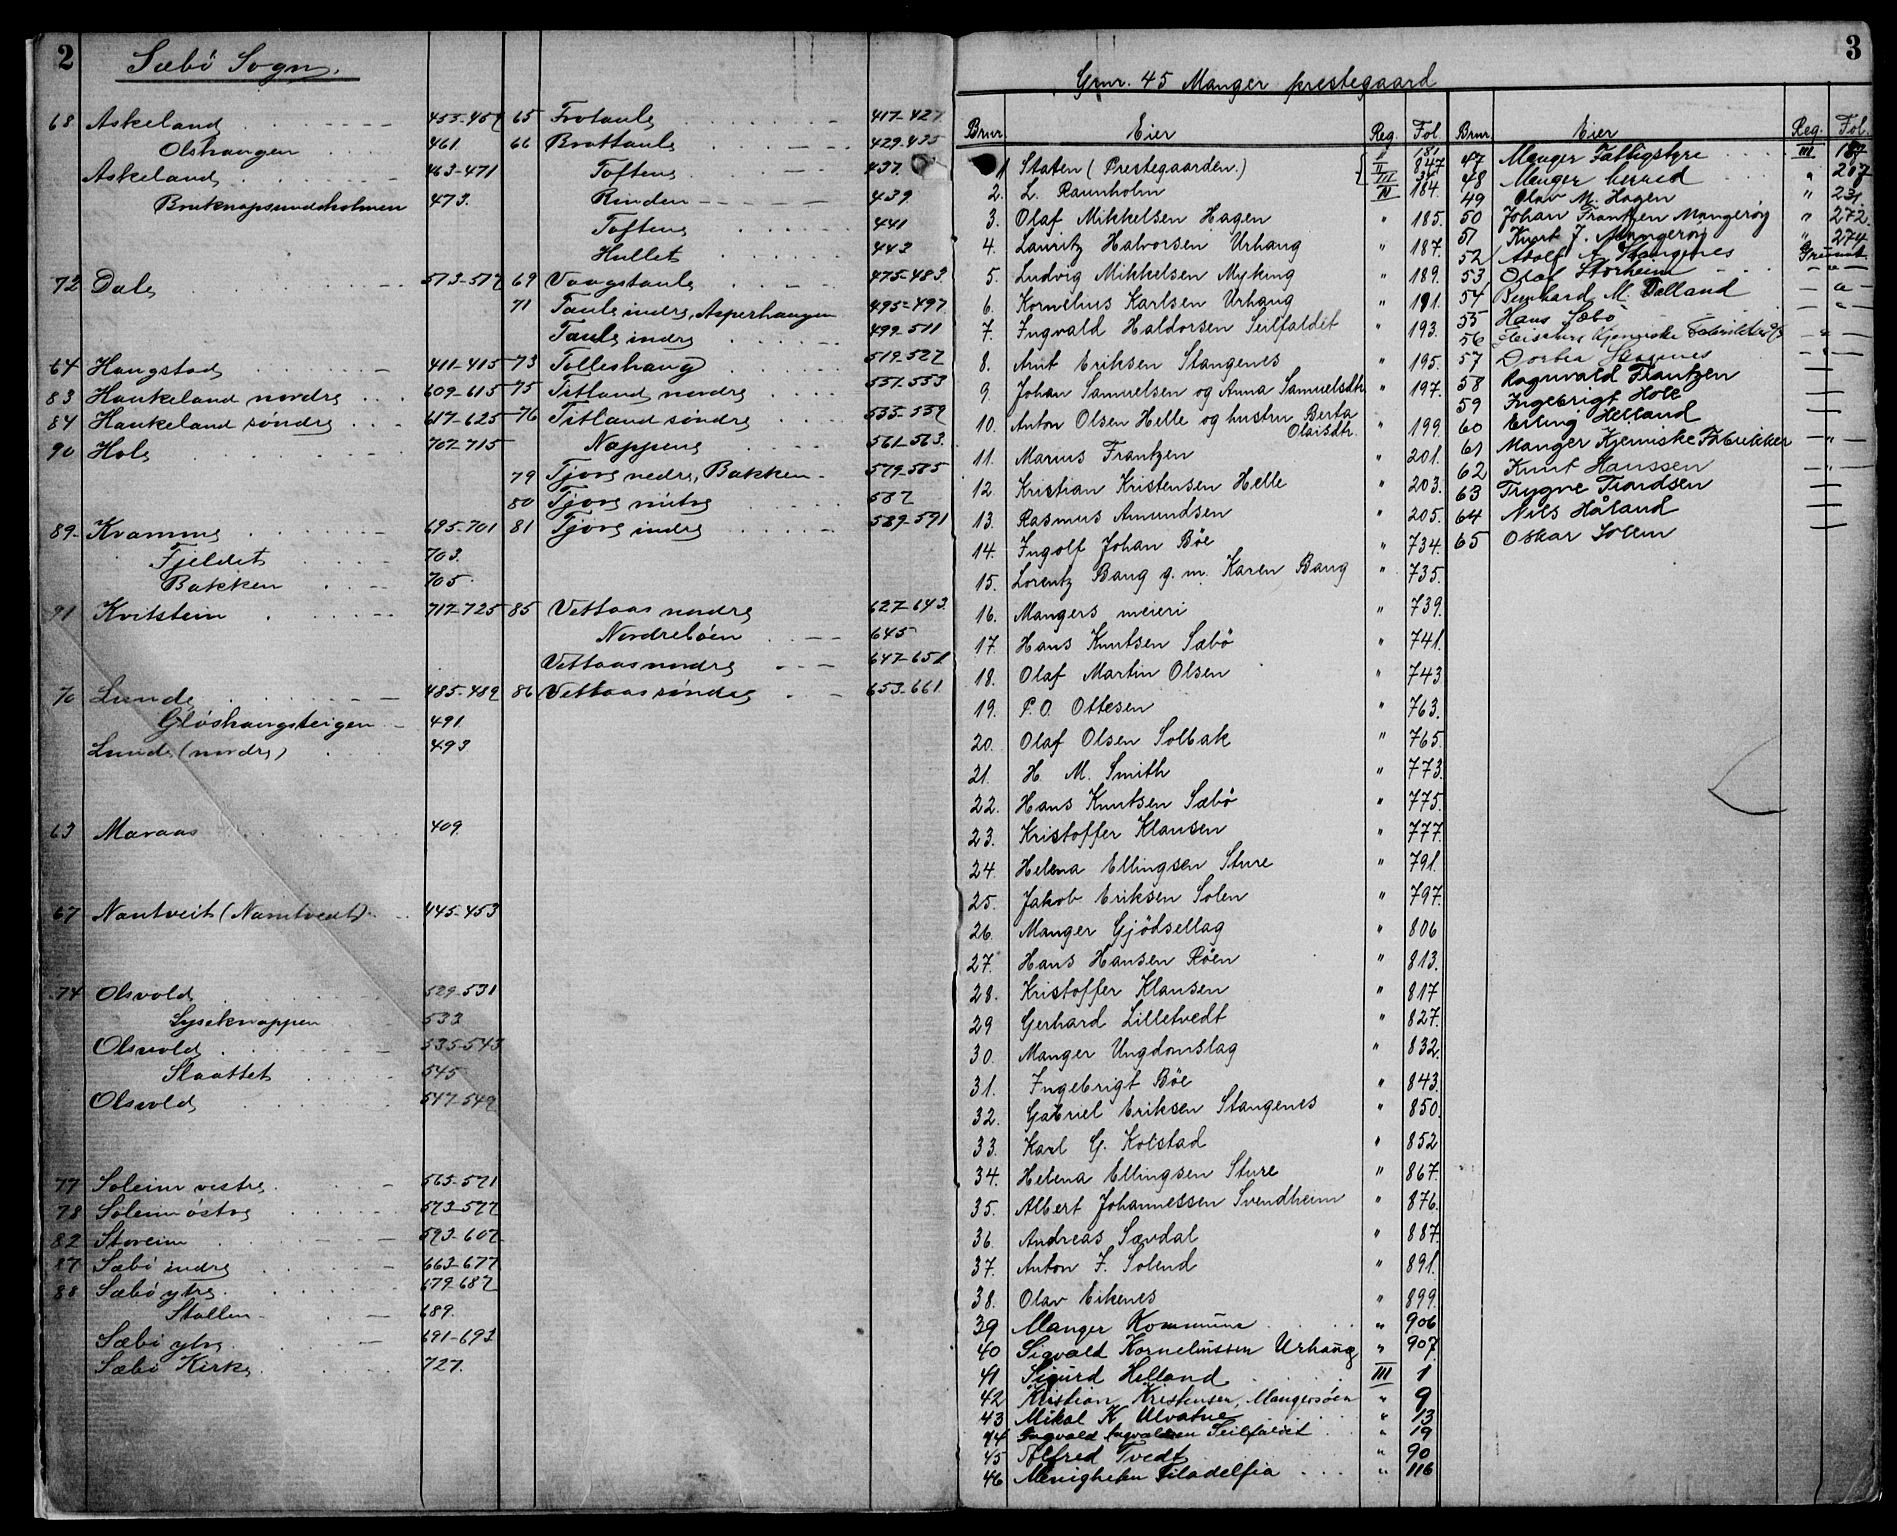 2
Sæbö Sogn.
68 Askeland 455-459
Olshaugen 461
Askeland 463-471
Bruknapsundsholmen 473.
72 Dale 513-517
64 Haugstad 411-415
83 Haukeland nordre 609-615
84 Haukeland söndre 617-625
90 Hole 707-715
89 Kvamme 695-701
Fjeldet 703.
Bakken 705.
91 Kvitstein 717-725
70 Lunde 485-489
Glöshaugsteigen 491.
Lunde (nordre) 493
63 Maraas 409.
67 Nautveit (Namtvedt) 445-453
74 Olsvold 529-531
Lyseknappen 533
Olsvold 535-543
Slaattet 545
Olsvold 547-549
77 Soleim vestre 565-571
78 Soleim östre 573-577
82 Storeim 593-607
87 Sæbö indre 663-677
88 Sæbö ytre 679-687
Stallen 689.
Sæbö ytre 691-693
Sæbö Kirke 727.
65 Frotaule 417-427
66 Brattaule 429-435
Toftene 437.
Rinden 439
Toftene 441
Hullet 443
69 Vaagstaule 475-483.
71 Taule indre, Asperhaugen 495-497
Taule indre 499-511
73 Tolleshaug 519-527
75 Titland nordre 551-553
76 Titland söndre 555-559
Nappene 561-563.
79 Tjore nedre, Bakken 579-585
80 Tjore mitre 587
81 Tjore indre 589-591
85 Vettaas nordre 627-643.
Nordreböen 645
Vettaas nordre 647-651
86 Vettaas söndre 653-661
3
Gnr. 45 Manger prestegaard
Brnr. Eier Reg. Fol.
1 Staten (Prestegaarden.) I 181 II 847 III
2. L. Raunholm IV 184.
3. Olaf Mikkelsen Hagen " 185.
4. Lauritz Halvorsen Urhaug " 187.
5. Ludvig Mikkelsen Myking " 189.
6. Kornelius Karlsen Urhaug " 191.
7. Ingvald Haldorsen Seilfaldet " 193.
8. Arnt Eriksen Stangenes " 195.
9. Johan Samuelsen og Anna Samuelsdtr " 197.
10. Anton Olsen Helle og hustru Berta
Olaisdtr. " 199.
11. Marius Frantzen " 201.
12. Kristian Kristensen Helle " 203.
13. Rasmus Amundsen " 205.
14. Ingolf Johan Böe " 734.
15. Lorentz Bang g.m. Karen Bang " 735.
16. Mangers meieri " 739.
17. Hans Knutsen Sæbö " 741.
18. Olaf Martin Olsen " 743
19. P.O. Ottesen " 763.
20. Olaf Olsen Solbak " 765.
21. H. M. Smith " 773.
22. Hans Knutsen Sæbö " 775.
23. Kristoffer Klausen " 777.
24. Helena Ellingsen Sture " 791.
25. Jakob Eriksen Solen " 797.
26. Manger Gjödsellag " 806
27. Hans Hansen Röen " 813.
28. Kristoffer Klausen " 817
29 Gerhard Lilletvedt " 827.
30. Manger Ungdomslag " 832.
31. Ingebrigt Böe " 843.
32. Gabriel Eriksen Stangenes " 850.
33. Karl G. Kolstad " 852
34. Helena Ellingsen Sture " 867.
35. Albert Johannessen Svendheim " 876.
36. Andreas Sævdal " 887.
37. Anton F. Solend " 891.
38. Olav Eikenes " 899.
39 Manger Kommune " 906
40 Sigvald Korneliussen Urhaug " 907.
41 Sigurd Helland III 1
42 Kristian Kristensen, Mangersöen " 9
43 Mikal K. Ulvatne " 13
44 Ingvald Ingvaldsen Seilfaldet " 19
45 Alfred Tvedt " 90
46 Menigheten Filadelfia " 116
Brnr. Eier Reg. Fol.
47 Manger Fattigstyre III 187
48 Manger herred " 217
49 Olav M. Hagen " 231.
50 Johan Frantzen Mangeröy " 272.
51 Knut J. Mangeröy " 274.
52 Adolf A. Stangenes Grunnb.
53 Olaf Storheim — " —
54 Bernhard M. Dalland — " —
55 Hans Sæbö — " —
56 Kjemiske Fabrikker — " —
57 Dortea Stangnes — " —
58 Ragnvald Frantzen
59 Ingebrigt Hole
60 Erling Helland
61 Manger Kjemiske Fabrikker — " —
62 Knut Hanssen — " —
63 Trygve Tjordsen
64 Nils Håland
65 Oskar Solem